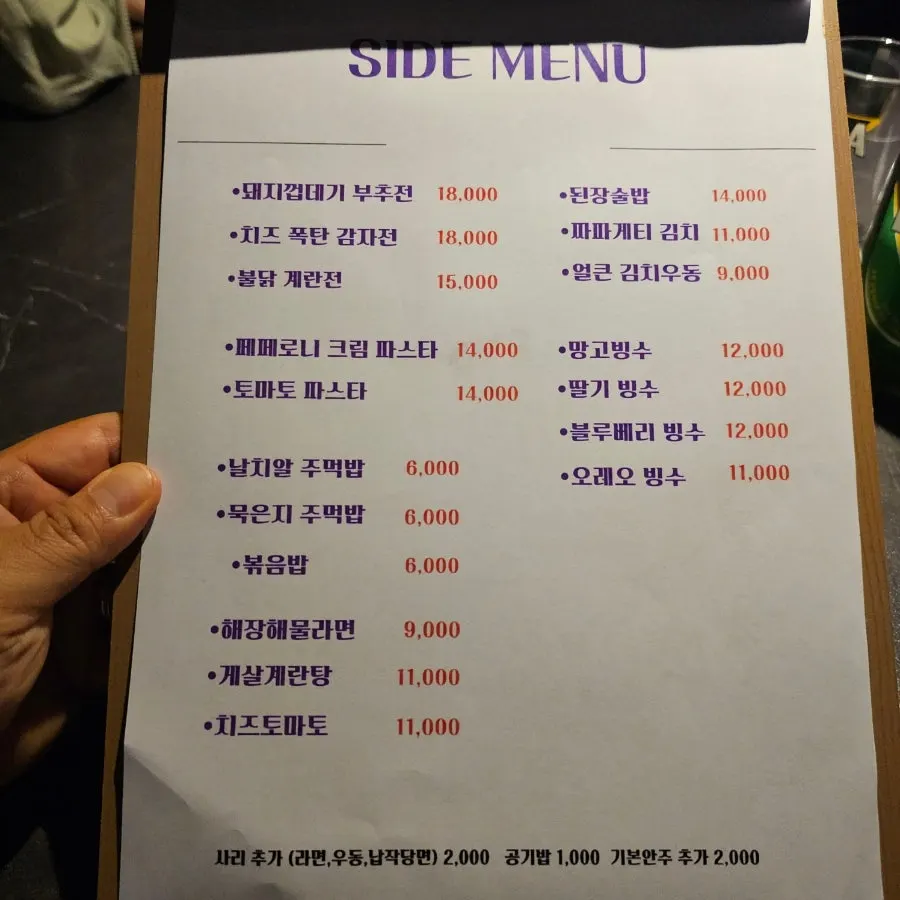 SIDE MENU
•돼지껍데기 부추전 18,000
•치즈 폭탄 감자전 18,000
•불닭 계란전 15,000
•페페로니 크림 파스타 14,000
•토마토 파스타 14,000
•날치알 주먹밥 6,000
•묵은지 주먹밥 6,000
•볶음밥 6,000
•해장해물라면 9,000
•게살계란탕 11,000
•치즈토마토 11,000
•된장술밥 14,000
•짜파게티 김치 11,000
•얼큰 김치우동 9,000
•망고빙수 12,000
•딸기 빙수 12,000
•블루베리 빙수 12,000
•오레오 빙수 11,000
사리 추가 (라면,우동,납작당면) 2,000 공기밥 1,000 기본안주 추가 2,000